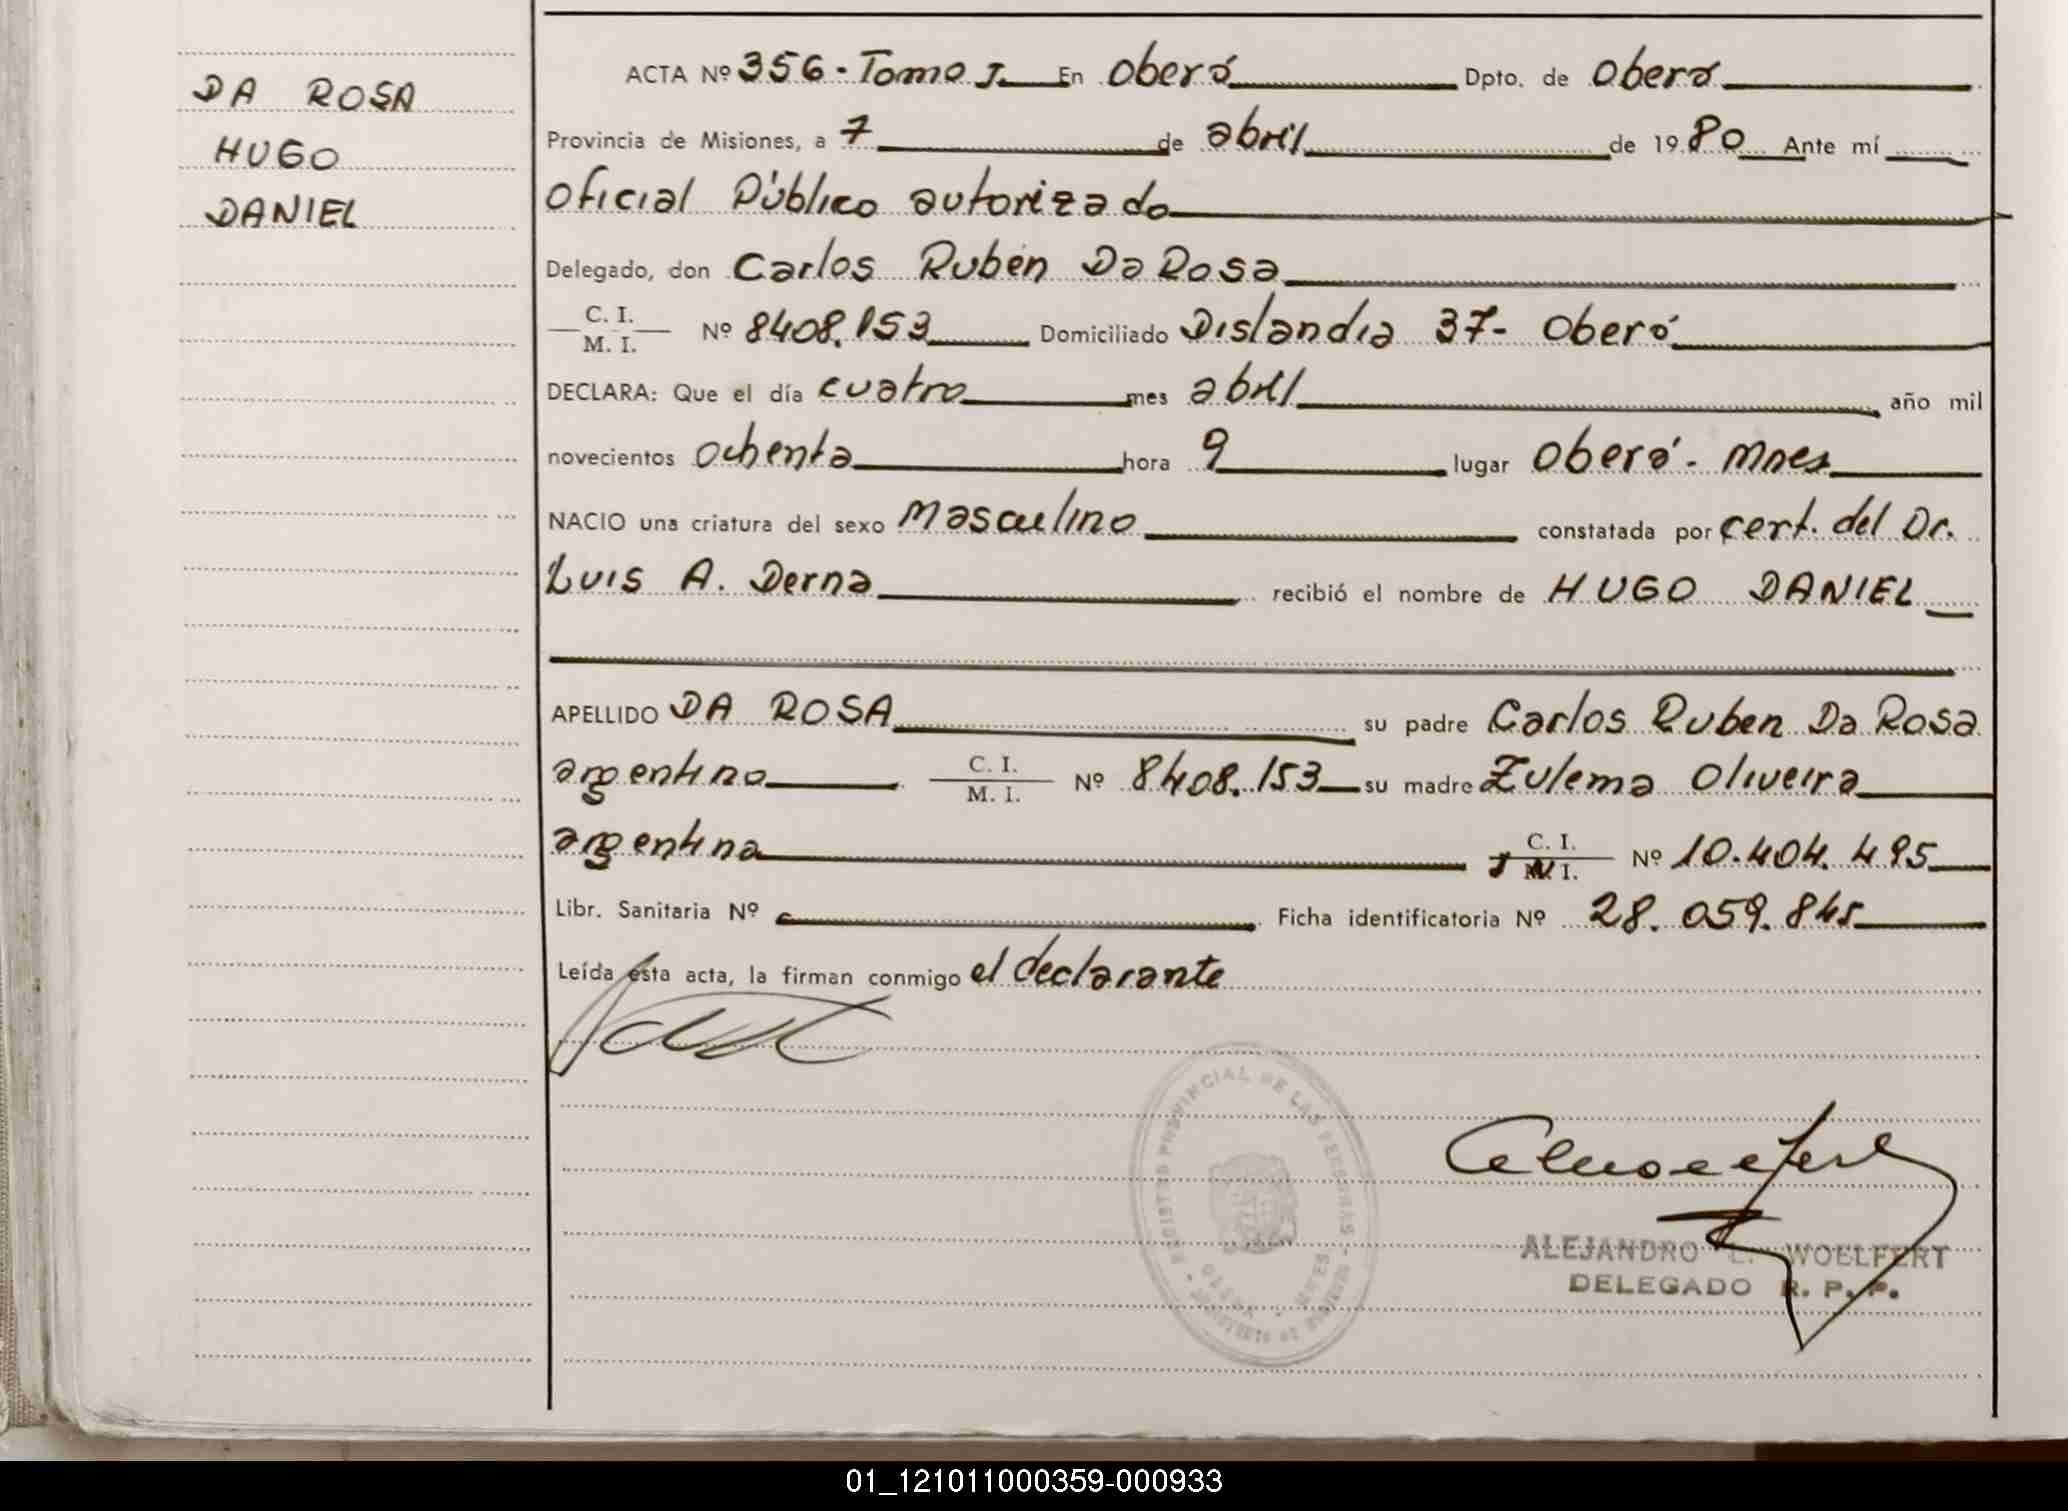 DA ROSA
HUGO
DANIEL
ACTA Nº 356 - Tomo I. En Oberá Dpto. de Oberá
Provincia de Misiones, a 7 de abril de 1980 Ante mí
Oficial Público autorizado
Delegado, don Carlos Rubén Da Rosa
C. I.
M. I. Nº 8408.153 Domiciliado Dislandia 37 - Oberá
DECLARA: Que el día cuatro mes abril año mil
novecientos ochenta hora 9 lugar Oberá - Mnes
NACIO una criatura del sexo Masculino constatada por cert. del Dr.
Luis A. Derna recibió el nombre de HUGO DANIEL
APELLIDO DA ROSA su padre Carlos Ruben Da Rosa
argentino C. I. M. I. Nº 8408.153 su madre Zulema Oliveira
argentina C. I. M. I. Nº 10.404.495
Libr. Sanitaria Nº Ficha identificatoria Nº 28.059.845
Leída esta acta, la firman conmigo el declarante
REGISTRO PROVINCIAL DE LAS PERSONAS
ALEJANDRO E. WOELFERT
DELEGADO R. P. P.
01_121011000359-000933